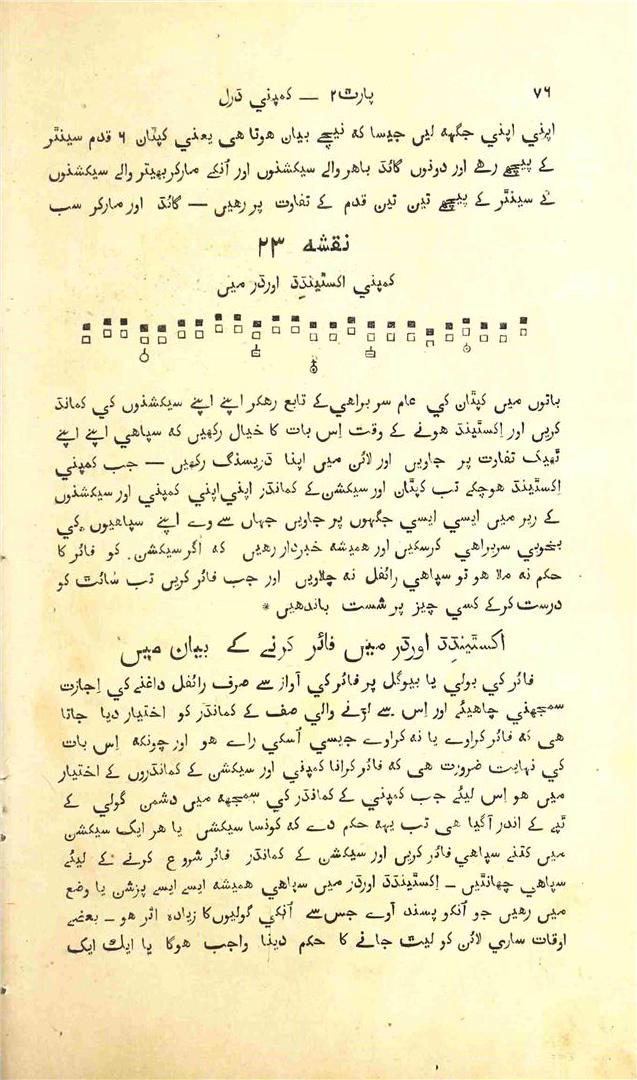 ۷۶
پارٹ ۲ — کمپني ڈرل
اپني اپني جگہہ لیں جیسا کہ نیچے بیان هوتا هی یعني کپتان ۶ قدم سینٹر
کے پیچھے رهے اور دونوں گائڈ باهر والے سیکشنوں اور اُنکے مارکر بھیتر والے سیکشنوں
کے سینٹر کے پیچھے تین تین قدم کے تفاوت پر رهیں — گائڈ اور مارکر سب
نقشہ ۲۳
کمپني اکسٹینڈِڈ اورڈر میں
باتوں میں کپتان کي عام سربراهي کے تابع رهکر اپنے اپنے سیکشنوں کي کمانڈ
کریں اور اِکسٹینڈ هونے کے وقت اِس بات کا خیال رکھیں کہ سپاهي اپنے اپنے
ٹھیک تفاوت پر جاویں اور لائن میں اپنا ڈریسنگ رکھیں — جب کمپني
اِکسٹینڈ هوچکے تب کپتان اور سیکشن کے کمانڈر اپني اپني کمپني اور سیکشنوں
کے ریر میں ایسي ایسي جگہوں پر جاویں جہاں سے وے اپنے سپاهیوں کي
بخوبي سربراهي کرسکیں اور همیشہ خبردار رهیں کہ اگر سیکشن کو فائر کا
حکم نہ ملا هو تو سپاهي رائفل نہ چلاویں اور جب فائر کریں تب سائٹ کو
درست کرکے کسي چیز پر شست باندهیں *
اکسٹینڈِڈ اورڈر میں فائر کرنے کے بیان میں
فائر کي بولي یا بیوگل پر فائر کي آواز سے صرف رائفل داغنے کي اِجازت
سمجھني چاهیئے اور اِس سے لڑنے والي صف کے کمانڈر کو اختیار دیا جاتا
هی کہ فائر کراوے یا نہ کراوے جیسي اُسکي راے هو اور چونکہ اِس بات
کي نہایت ضرورت هی کہ فائر کرانا کمپني اور سیکشن کے کمانڈروں کے اختیار
میں هو اِس لیئے جب کمپني کے کمانڈر کي سمجھہ میں دشمن گولي کے
ٹپے کے اندر آگیا هی تب یہہ حکم دے کہ کونسا سیکشن یا هر ایک سیکشن
میں کتنے سپاهي فائر کریں اور سیکشن کے کمانڈر فائر شروع کرنے کے لیئے
سپاهي چھانٹیں — اِکسٹینڈڈ اورڈر میں سپاهي همیشہ ایسے ایسے پزشن یا وضع
میں رهیں جو اُنکو پسند آوے جس سے اُنکي گولیوں کا زیادہ اثر هو — بعضے
اوقات ساري لائن کو لیٹ جانے کا حکم دینا واجب هوگا یا ایک ایک